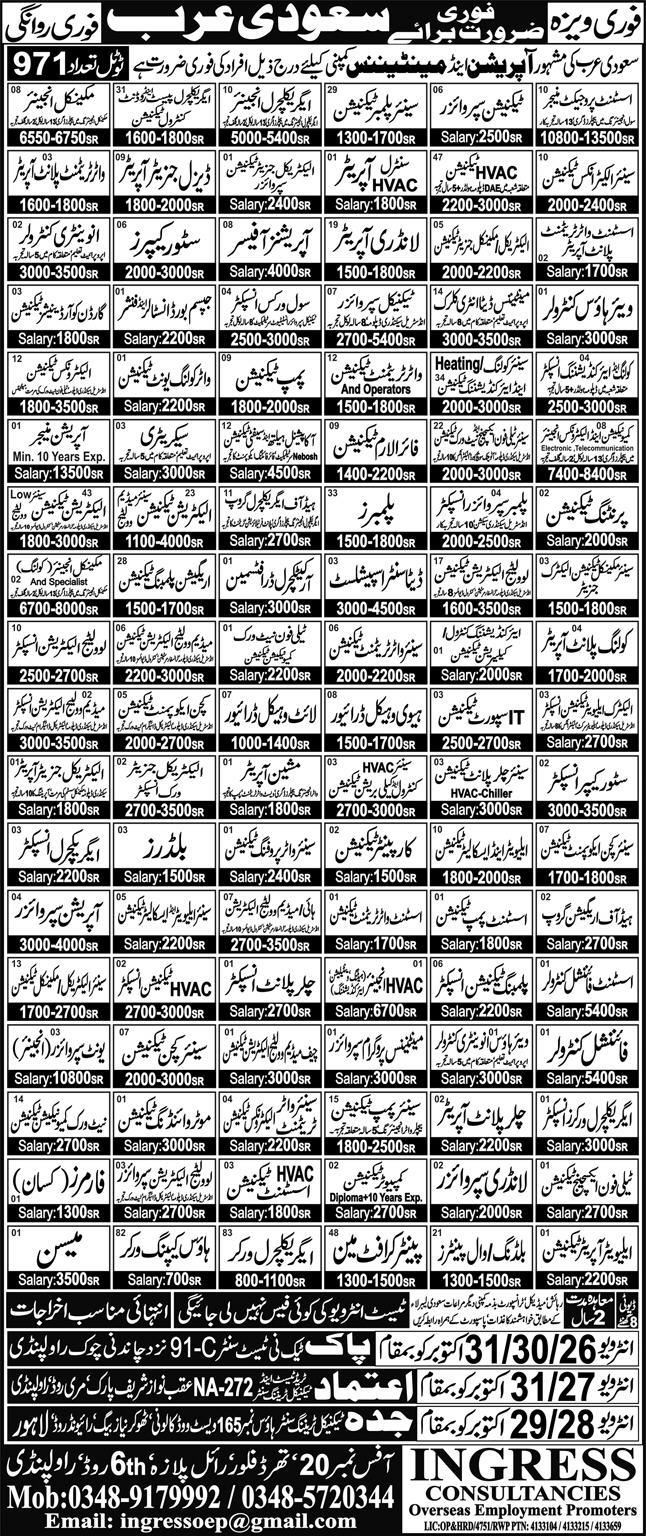 فوری ویزہ
فوری ضرورت برائے
سعودی عرب
فوری روانگی
سعودی عرب کی مشہور آپریشن اینڈ مینٹیننس کمپنی کیلئے درج ذیل افراد کی فوری ضرورت ہے
ٹوٹل تعداد 971
10 اسسٹنٹ پروجیکٹ منیجر
10800-13500SR
06 ٹیکنیشن سپروائزر
Salary:2500SR
29 سینئر پلمبر ٹیکنیشن
1300-1700SR
10 ایگریکلچرل انجینئر
5000-5400SR
31 ایگریکلچرل پیسٹ اینڈ وڈنٹ کنٹرول ٹیکنیشن
1600-1800SR
08 مکینیکل انجینئر
6550-6750SR
10 سینئر الیکٹرانکس ٹیکنیشن
2000-2400SR
47 HVAC ٹیکنیشن
2200-3000SR
01 سنٹرل HVAC آپریٹر
Salary:1800SR
01 الیکٹریکل جنریٹر ٹیکنیشن سپروائزر
Salary:2400SR
09 ڈیزل جنریٹر آپریٹر
1800-2000SR
03 واٹر ٹریٹمنٹ پلانٹ آپریٹر
1600-1800SR
اسسٹنٹ واٹر ٹریٹمنٹ پلانٹ آپریٹر 02
Salary:1700SR
05 الیکٹریکل/مکینیکل جنریٹر ٹیکنیشن
2000-2200SR
19 لانڈری آپریٹر
1500-1800SR
08 آپریشنز آفیسر
Salary:4000SR
06 سٹور کیپرز
2000-3000SR
02 انوینٹری کنٹرولر
3000-3500SR
01 ویئر ہاؤس کنٹرولر
Salary:3000SR
14 مینٹیننس ڈیٹا انٹری کلرک
3000-3500SR
07 ٹیکنیکل سپروائزر
2700-5400SR
04 سول ورکس انسپکٹر
2500-3000SR
01 جپسم بورڈ انسٹالر اینڈ فنشر
Salary:2200SR
03 گارڈن کوآرڈینیٹر ٹیکنیشن
Salary:1800SR
04 کولنگ اینڈ ایئرکنڈیشننگ انسپکٹر
2500-3000SR
Heating/سینئر کولنگ اینڈ ایئرکنڈیشننگ ٹیکنیشن 34
2000-3000SR
12 واٹر ٹریٹمنٹ ٹیکنیشن
And Operators
1500-1800SR
09 پمپ ٹیکنیشن
1800-2000SR
01 واٹر کولنگ یونٹ ٹیکنیشن
Salary:2200SR
12 الیکٹرونکس ٹیکنیشن
1800-3500SR
08 کمیونیکیشن اینڈ الیکٹرونکس انجینئر
Electronic,Telecommunication
7400-8400SR
22 سینئر ٹیلی فون ایکسچینج نیٹ ورک ٹیکنیشن
2000-3000SR
09 فائر الارم ٹیکنیشن
1400-2200SR
12 آکوپیشنل ہیلتھ اینڈ سیفٹی ٹیکنیشن
Nebosh
Salary:4500SR
03 سیکریٹری
Salary:3000SR
01 آپریشن منیجر
Min. 10 Years Exp.
Salary:13500SR
02 پرنٹنگ ٹیکنیشن
Salary:2000SR
04 پلمبر سپروائزر انسپکٹر
2000-2500SR
33 پلمبرز
1500-1800SR
11 ہیڈ آف ایگریکلچرل گروپ
Salary:2700SR
23 سینئر میڈیم وولٹیج الیکٹریشن ٹیکنیشن
1100-4000SR
43 سینئر Low وولٹیج الیکٹریشن ٹیکنیشن
1800-3000SR
03 سینئر مکینیکل ٹیکنیشن الیکٹرک جنریٹر
1500-1800SR
17 لو وولٹیج الیکٹریشن ٹیکنیشن
1600-3500SR
03 ڈیٹا سنٹر اسپیشلسٹ
3000-4500SR
01 آرکیٹکچرل ڈرافٹسمین
Salary:3000SR
28 اریگیشن پلمبنگ ٹیکنیشن
1500-1700SR
مکینیکل انجینئر (کولنگ)
And Specialist 02
6700-8000SR
04 کولنگ پلانٹ آپریٹر
1700-2000SR
ایئرکنڈیشننگ کنٹرول/کیلبریشن ٹیکنیشن 01
Salary:2000SR
06 سینئر واٹر ٹریٹمنٹ ٹیکنیشن
2000-2200SR
01 ٹیلی فون نیٹ ورک کمیونیکیشن ٹیکنیشن
Salary:2200SR
06 میڈیم وولٹیج الیکٹریشن ٹیکنیشن
2200-3000SR
10 لو وولٹیج الیکٹریشن انسپکٹر
2500-2700SR
01 الیکٹرک ایلیویٹر ٹیکنیشن انسپکٹر
Salary:2700SR
03 IT سپورٹ ٹیکنیشن
2500-2700SR
08 ہیوی وہیکل ڈرائیور
1500-1700SR
07 لائٹ وہیکل ڈرائیور
1000-1400SR
05 کچن ایکوپمنٹ ٹیکنیشن
2000-2700SR
02 میڈیم وولٹیج الیکٹریشن انسپکٹر
3000-3500SR
02 سٹور کیپر انسپکٹر
3000-3500SR
03 سینئر چلر پلانٹ ٹیکنیشن
HVAC-Chiller
Salary:3000SR
03 سینئر HVAC کنٹرول کیلی بریشن ٹیکنیشن
2700-3000SR
01 مشین آپریٹر
Salary:1800SR
02 الیکٹریکل جنریٹر ورک انسپکٹر
2700-3500SR
01 الیکٹریکل جنریٹر آپریٹر
Salary:1800SR
07 سینئر کچن ایکوپمنٹ ٹیکنیشن
1700-1800SR
10 ایلیویٹر اینڈ ایسکالیٹر ٹیکنیشن
1800-2000SR
02 کارپینٹر ٹیکنیشن
Salary:2000SR
01 سینئر واٹر پروفنگ ٹیکنیشن
Salary:2400SR
03 بلڈرز
Salary:1500SR
03 ایگریکلچرل انسپکٹر
Salary:2200SR
02 ہیڈ آف اریگیشن گروپ
Salary:2700SR
01 اسسٹنٹ پمپ ٹیکنیشن
Salary:1800SR
01 اسسٹنٹ واٹر ٹریٹمنٹ ٹیکنیشن
Salary:1700SR
07 ہائی/میڈیم وولٹیج الیکٹریشن
2700-3500SR
05 سینئر ایلیویٹر اینڈ ایسکالیٹر ٹیکنیشن
Salary:2200SR
04 آپریشن سپروائزر
3000-4000SR
01 اسسٹنٹ فنانشل کنٹرولر
Salary:5400SR
06 پلمبنگ ٹیکنیشن انسپکٹر
Salary:2200SR
01 HVAC انجینئر
Salary:6700SR
01 چلر پلانٹ انسپکٹر
Salary:2700SR
02 HVAC ٹیکنیشن انسپکٹر
2700-3000SR
13 سینئر الیکٹریکل/مکینیکل ٹیکنیشن
1700-2700SR
01 فائننشل کنٹرولر
Salary:5400SR
ویئر ہاؤس انوینٹری کنٹرولر
Salary:3000SR
01 مینٹیننس پروگرام سپروائزر
Salary:3000SR
01 چیف میڈیم وولٹیج الیکٹریشن ٹیکنیشن
Salary:3000SR
07 سینئر کچن ٹیکنیشن
2000-3000SR
03 یونٹ سپروائزر (انجینئر)
Salary:10800SR
01 ایگریکلچرل ورکرز انسپکٹر
Salary:3000SR
02 چلر پلانٹ آپریٹر
Salary:2000SR
15 سینئر پمپ ٹیکنیشن
1800-2500SR
04 سینئر واٹر ٹریٹمنٹ الیکٹرونکس ٹیکنیشن
Salary:2700SR
01 موٹر وائنڈنگ ٹیکنیشن
Salary:3000SR
14 نیٹ ورک کمیونیکیشن ٹیکنیشن
Salary:2700SR
01 ٹیلی فون ایکسچینج ٹیکنیشن
Salary:2700SR
02 لانڈری سپروائزر
Salary:2000SR
02 کمپیوٹر ٹیکنیشن
Diploma+10 Years Exp.
Salary:2700SR
03 HVAC اسسٹنٹ ٹیکنیشن
Salary:1800SR
03 لو وولٹیج الیکٹریشن سپروائزر
Salary:2700SR
فارمرز (کسان) 01
Salary:1300SR
01 ایلیویٹر آپریٹر ٹیکنیشن
Salary:2200SR
21 بلڈنگ/وال پینٹرز
1300-1500SR
48 پینٹر کرافٹ مین
1300-1500SR
83 ایگریکلچرل ورکر
800-1100SR
82 ہاؤس کیپنگ ورکر
Salary:700SR
01 میسن
Salary:3500SR
ڈیوٹی 8 گھنٹے
معاہدہ مدت 2 سال
رہائش، میڈیکل، ٹرانسپورٹ بذمہ کمپنی دیگر مراعات سعودی لیبر لاء کے مطابق خواہشمند کاغذات پاسپورٹ کے ہمراہ رابطہ کریں
ٹیسٹ انٹرویو کی کوئی فیس نہیں لی جائیگی
انتہائی مناسب اخراجات
انٹرویو 31/30/26 اکتوبر کو بمقام پاک ٹیک نی ٹیسٹ سنٹر 91-C نزد چاندنی چوک راولپنڈی
انٹرویو 31/27 اکتوبر کو بمقام اعتماد ٹریڈ ٹیسٹ اینڈ ٹیکنیکل ٹریننگ سنٹر NA-272 عقب نواز شریف پارک، مری روڈ، راولپنڈی
انٹرویو 29/28 اکتوبر کو بمقام جدہ ٹیکنیکل ٹریننگ سنٹر ہاؤس نمبر 165 ویسٹ ووڈ کالونی، ٹھوکر نیاز بیگ، رائیونڈ روڈ، لاہور
INGRESS
CONSULTANCIES
Overseas Employment Promoters
LIC:OP&HRD/4751/RWP PTN: 4133104 / 4133215 / 4133659
آفس نمبر 20، تھرڈ فلور، رائل پلازہ، 6th روڈ، راولپنڈی
Mob:0348-9179992 / 0348-5720344
Email: ingressoep@gmail.com